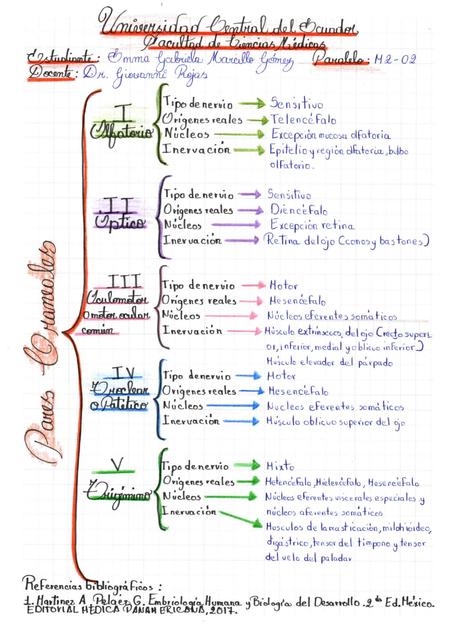 Universidad Central del Ecuador
Facultad de Ciencias Médicas
Estudiante: Emma Gabriela Marcillo Gómez Paralelo: M2-02
Docente: Dr. Giovanni Rojas
Pares Craneales
I
Olfatorio
Tipo de nervio → Sensitivo
Orígenes reales → Telencéfalo
Núcleos → Excepción mucosa olfatoria
Inervación → Epitelio y región olfatoria, bulbo
olfatorio.
II
Óptico
Tipo de nervio → Sensitivo
Orígenes reales → Diencéfalo
Núcleos → Excepción retina
Inervación → Retina del ojo (conos y bastones)
III
Oculomotor
o motor ocular
común
Tipo de nervio → Motor
Orígenes reales → Mesencéfalo
Núcleos → Núcleos eferentes somáticos
Inervación → Músculo extrínsecos, del ojo (recto superi
or, inferior, medial y oblicuo inferior.)
Músculo elevador del párpado
IV
Troclear
o Patético
Tipo de nervio → Motor
Orígenes reales → Mesencéfalo
Núcleos → Nucleos eferentes somáticos
Inervación → Músculo oblicuo superior del ojo
V
Trigémino
Tipo de nervio → Mixto
Orígenes reales → Metencéfalo, Mielencéfalo, Mesencéfalo
Núcleos → Núcleos eferentes viscerales especiales y
núcleos aferentes somáticos
Inervación → Musculos de la masticación, milohioideo,
digástrico, tensor del tímpano y tensor
del velo del paladar
Referencias bibliográficas:
1. Martinez A. Pelaez G. Embriología Humana y Biología del Desarrollo. 2da Ed. México.
EDITORIAL MÉDICA PANAMERICANA, 2017.